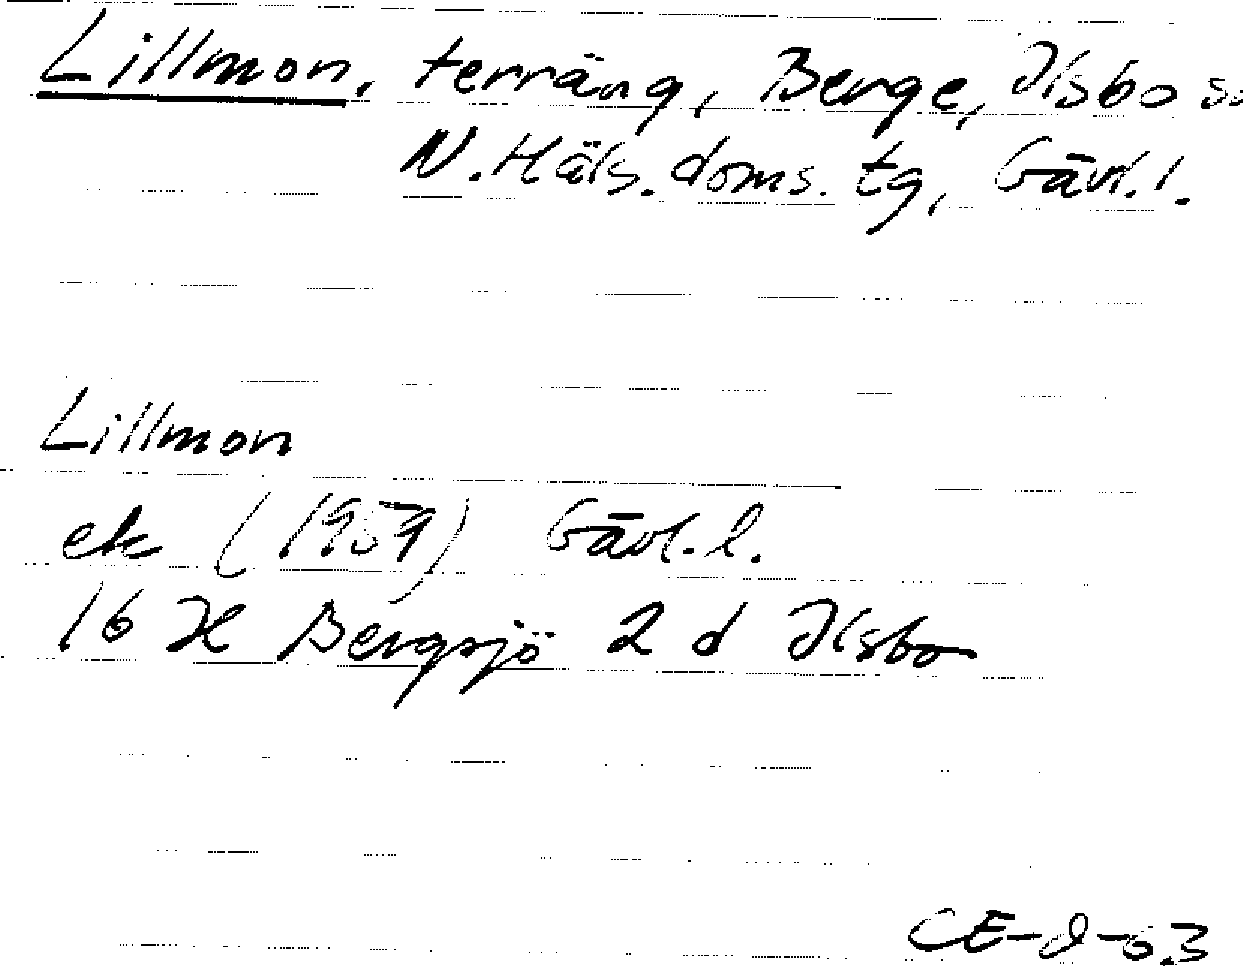 Lillmon, terräng, Berge, Ilsbo sn
N. Häls. doms. tg, Gävl. l.
Lillmon
ek (1959) Gävl. l.
16 H Bergsjö 2 d Ilsbo
CE-d-63